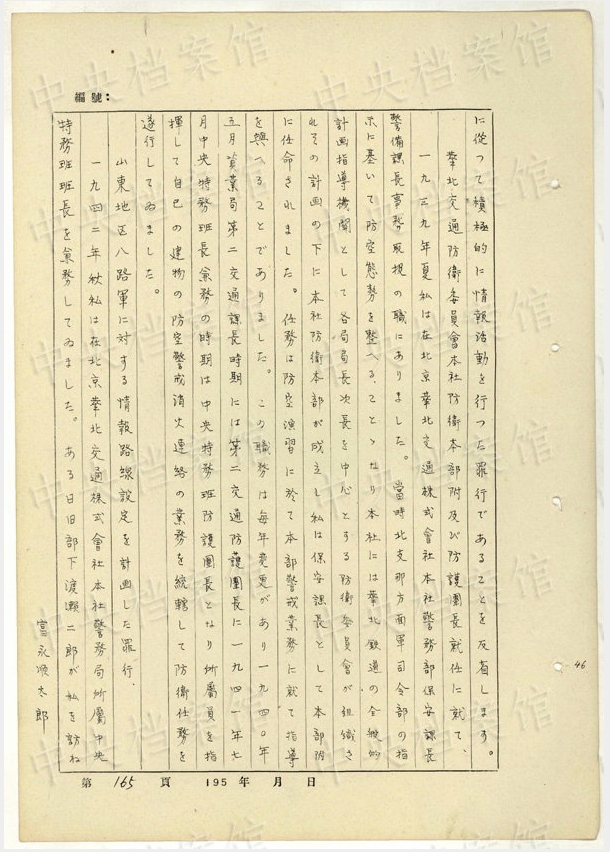 編號:
に従つて積極的に情報活動を行つた罪行であることを反省します。
華北交通防衛委員會本社防衛本部附及び防護團長就任に就て、
一九三九年夏私は在北京華北交通株式會社本社警務部保安課長
警備課長事務取扱の職にありました。當時北支那方面軍司令部の指
示に基いて防空態勢を整へることゝなり本社には華北鉄道の全般的
計画指導機関として各局局長次長を中心とする防衛委員會が組織さ
れその計画の下に本社防衛本部が成立し私は保安課長として本部附
に任命されました。任務は防空演習に於て本部警戒業務に就て指導
を與へることでありました。この職務は毎年変更があり一九四〇年
五月資業局第二交通課長時期には第二交通防護團長に一九四一年七
月中央特務班長兼務の時期は中央特務班防護團長となり所屬員を指
揮して自己の建物の防空警戒消火連絡の業務を統轄して防衛任務を
遂行してゐました。
山東地区八路軍に対する情報路線設定を計画した罪行.
一九四二年秋私は在北京華北交通株式會社本社警務局所屬中央
特務班班長を兼務してゐました。ある日旧部下渡瀬二郎が私を訪ね
富永順太郎
46
第 165 頁 195 年 月 日
中央档案馆